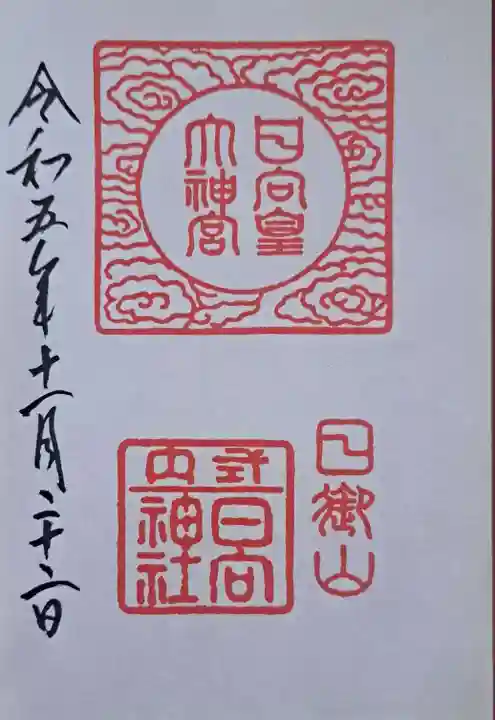 日向皇
大神宮
日御山
式内
日向
神社
令和五年十一月二十二日